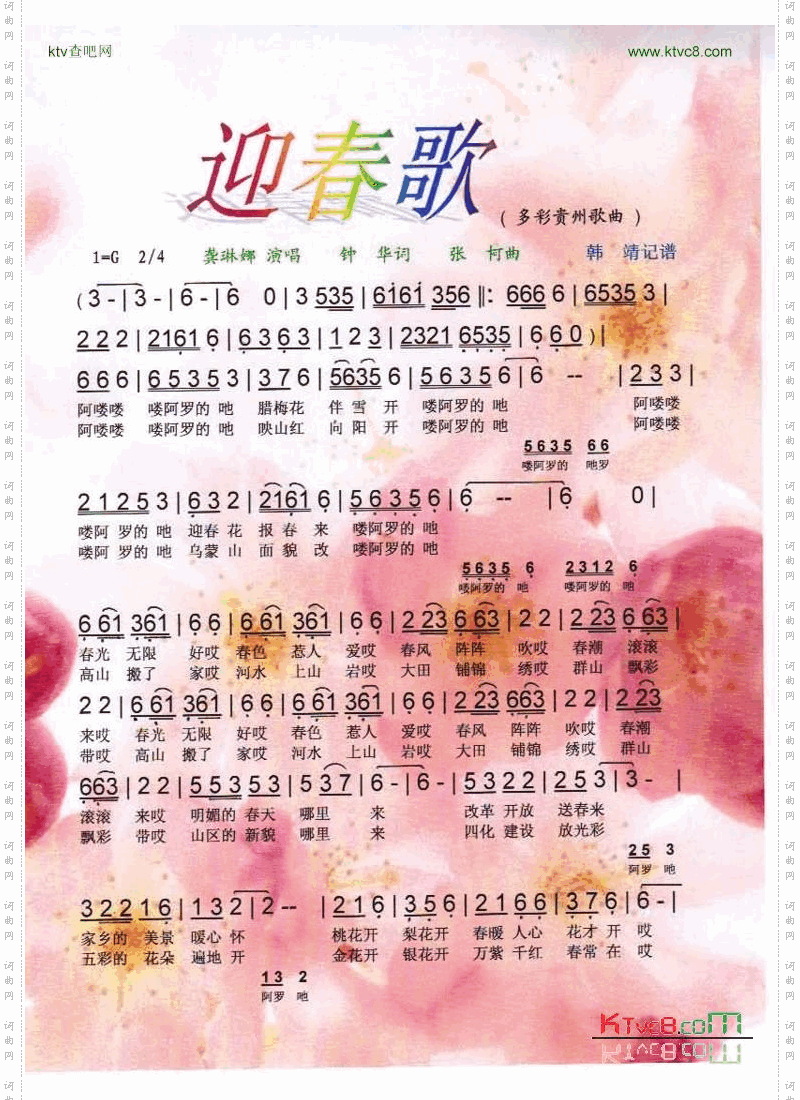 ktv查吧网 www.ktvc8.com
迎春歌
( 多彩贵州歌曲 )
1=G 2/4 龚琳娜 演唱 钟 华词 张 柯曲 韩 靖记谱
( 3 - | 3 - | 6 - | 6 0 | 3 535 | 6161 356 ‖: 666 6 | 6535 3 |
2 2 2 | 2161 6 | 6 3 6 3 | 1 2 3 | 2321 6535 | 6 6 0 ) |
6 6 6 | 6 5 3 5 3 | 3 7 6 | 5635 6 | 5 6 3 5 6 | 6 -- | 2 3 3 |
阿喽喽 喽阿罗的 吔 腊梅花 伴 雪 开 喽阿罗的 吔 阿喽喽
阿喽喽 喽阿罗的 吔 映山红 向 阳 开 喽阿罗的 吔 阿喽喽
5 6 3 5 6 6
喽阿罗的 吔罗
2 1 2 5 3 | 6 3 2 | 2161 6 | 5 6 3 5 6 | 6 -- | 6 0 |
喽阿 罗的 吔 迎春 花 报 春 来 喽阿罗的 吔
喽阿 罗的 吔 乌蒙 山 面 貌 改 喽阿罗的 吔
5 6 3 5 6 2 3 1 2 6
喽阿罗的 吔 喽阿罗的 吔
6 61 361 | 6 6 | 6 61 361 | 6 6 | 2 23 6 63 | 2 2 | 2 23 6 63 |
春光 无限 好哎 春色 惹人 爱哎 春风 阵阵 吹哎 春潮 滚滚
高山 搬了 家哎 河水 上山 岩哎 大田 铺锦 绣哎 群山 飘彩
2 2 | 6 61 361 | 6 6 | 6 61 361 | 6 6 | 2 23 663 | 2 2 | 2 23
来哎 春光 无限 好哎 春色 惹人 爱哎 春风 阵阵 吹哎 春潮
带哎 高山 搬了 家哎 河水 上山 岩哎 大田 铺锦 绣哎 群山
663 | 2 2 | 5 5 3 5 3 | 5 37 | 6 - | 6 - | 5 3 2 2 | 2 5 3 | 3 - |
滚滚 来哎 明媚的 春天 哪里 来 改革 开放 送春来
飘彩 带哎 山区的 新貌 哪里 来 四化 建设 放光彩
2 5 3
阿罗 吔
3 2 2 1 6 | 1 3 2 | 2 -- | 2 1 6 | 3 5 6 | 2 1 6 6 | 3 7 6 | 6 - |
家乡的 美景 暖心 怀 桃花开 梨花开 春暖 人心 花才 开 哎
五彩的 花朵 遍地 开 金花开 银花开 万紫 千红 春常 在 哎
1 3 2
阿罗 吔
KTVC8.COM